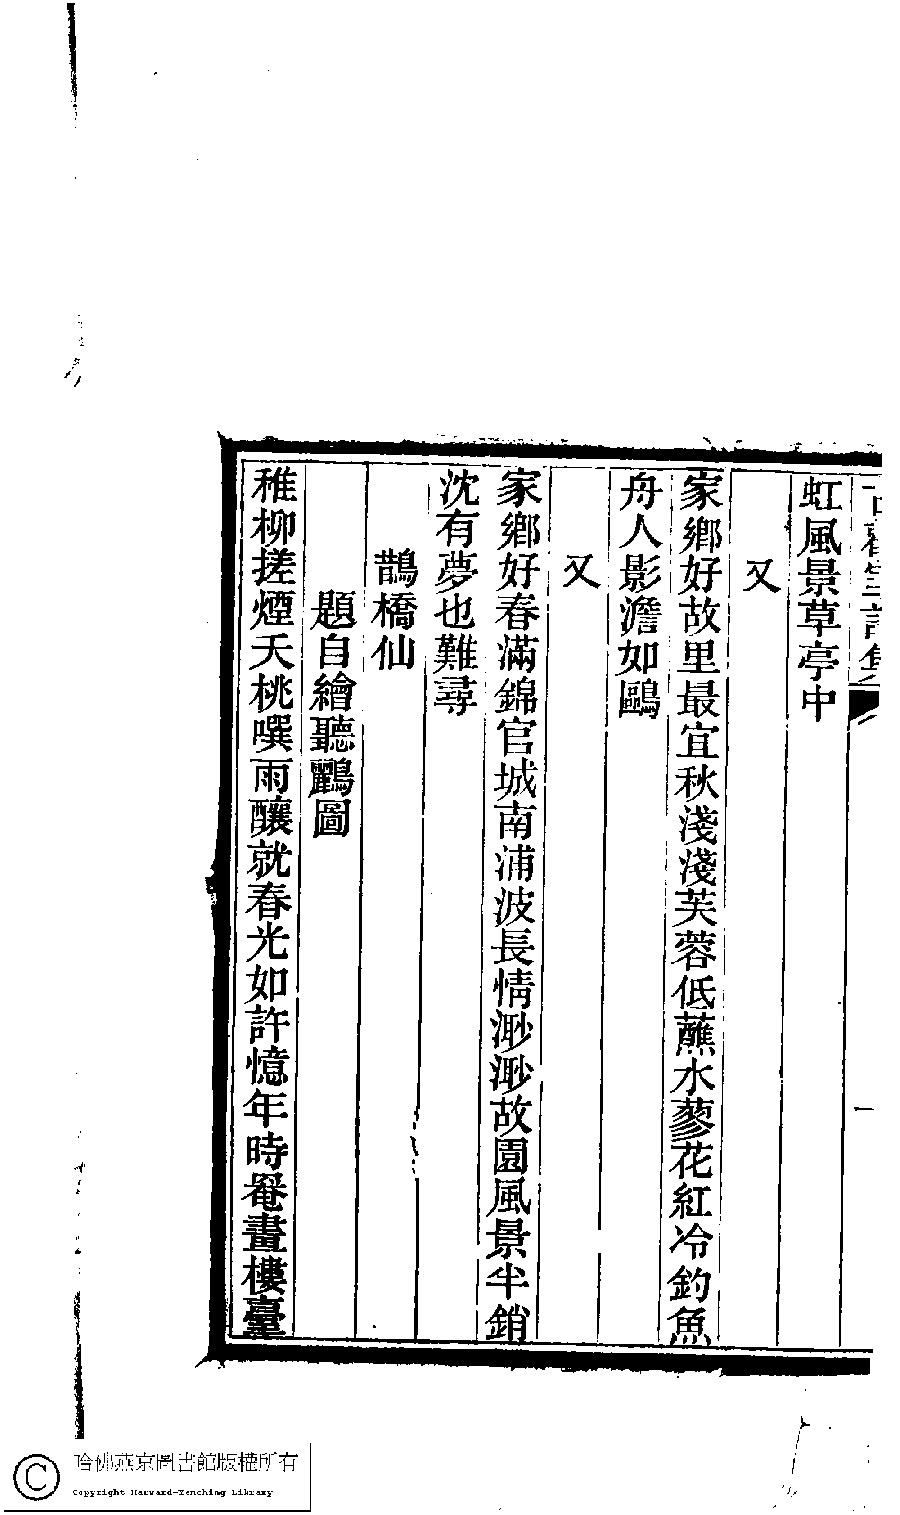 虹風景草亭中
又
家鄉好故里最宜秋淺淺芙蓉低蘸水蓼花紅冷釣魚
舟人影澹如鷗
又
家鄉好春滿錦官城南浦波長情渺渺故園風景半銷
沈有夢也難尋
鵲橋仙
題自繪聽鸝圖
稚柳搓煙夭桃噀雨釀就春光如許憶年時罨畫樓臺
哈佛燕京圖書館版權所有
Copyright Harvard-Yenching Library